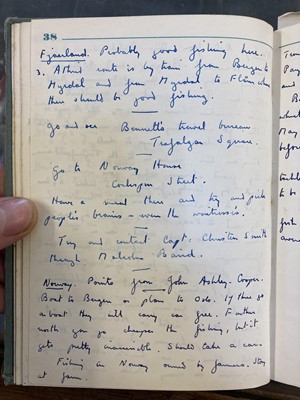 38
Fjaerland. Probably good fishing here.
3. Third route is by train from Bergen to
Myrdal and from Myrdal to Flåm where
there should be good fishing.
Go and see Bennetts travel bureau
Trafalgar Square.
Go to Norway House
Cockspur Street.
Have a meal there and try and pick
people's brains - even the waitresses.
Try and contact Capt. Christen Smith
through Malcolm
Norway. Points from John Ashley-Cooper.
Boat to Bergen or plane to Oslo. If there is
a boat they will carry car free. Further
north you go cheaper the fishing, but it
gets pretty inaccessible. Should take a car.
Fishing in Norway owned by farmers. Stay
at farm.